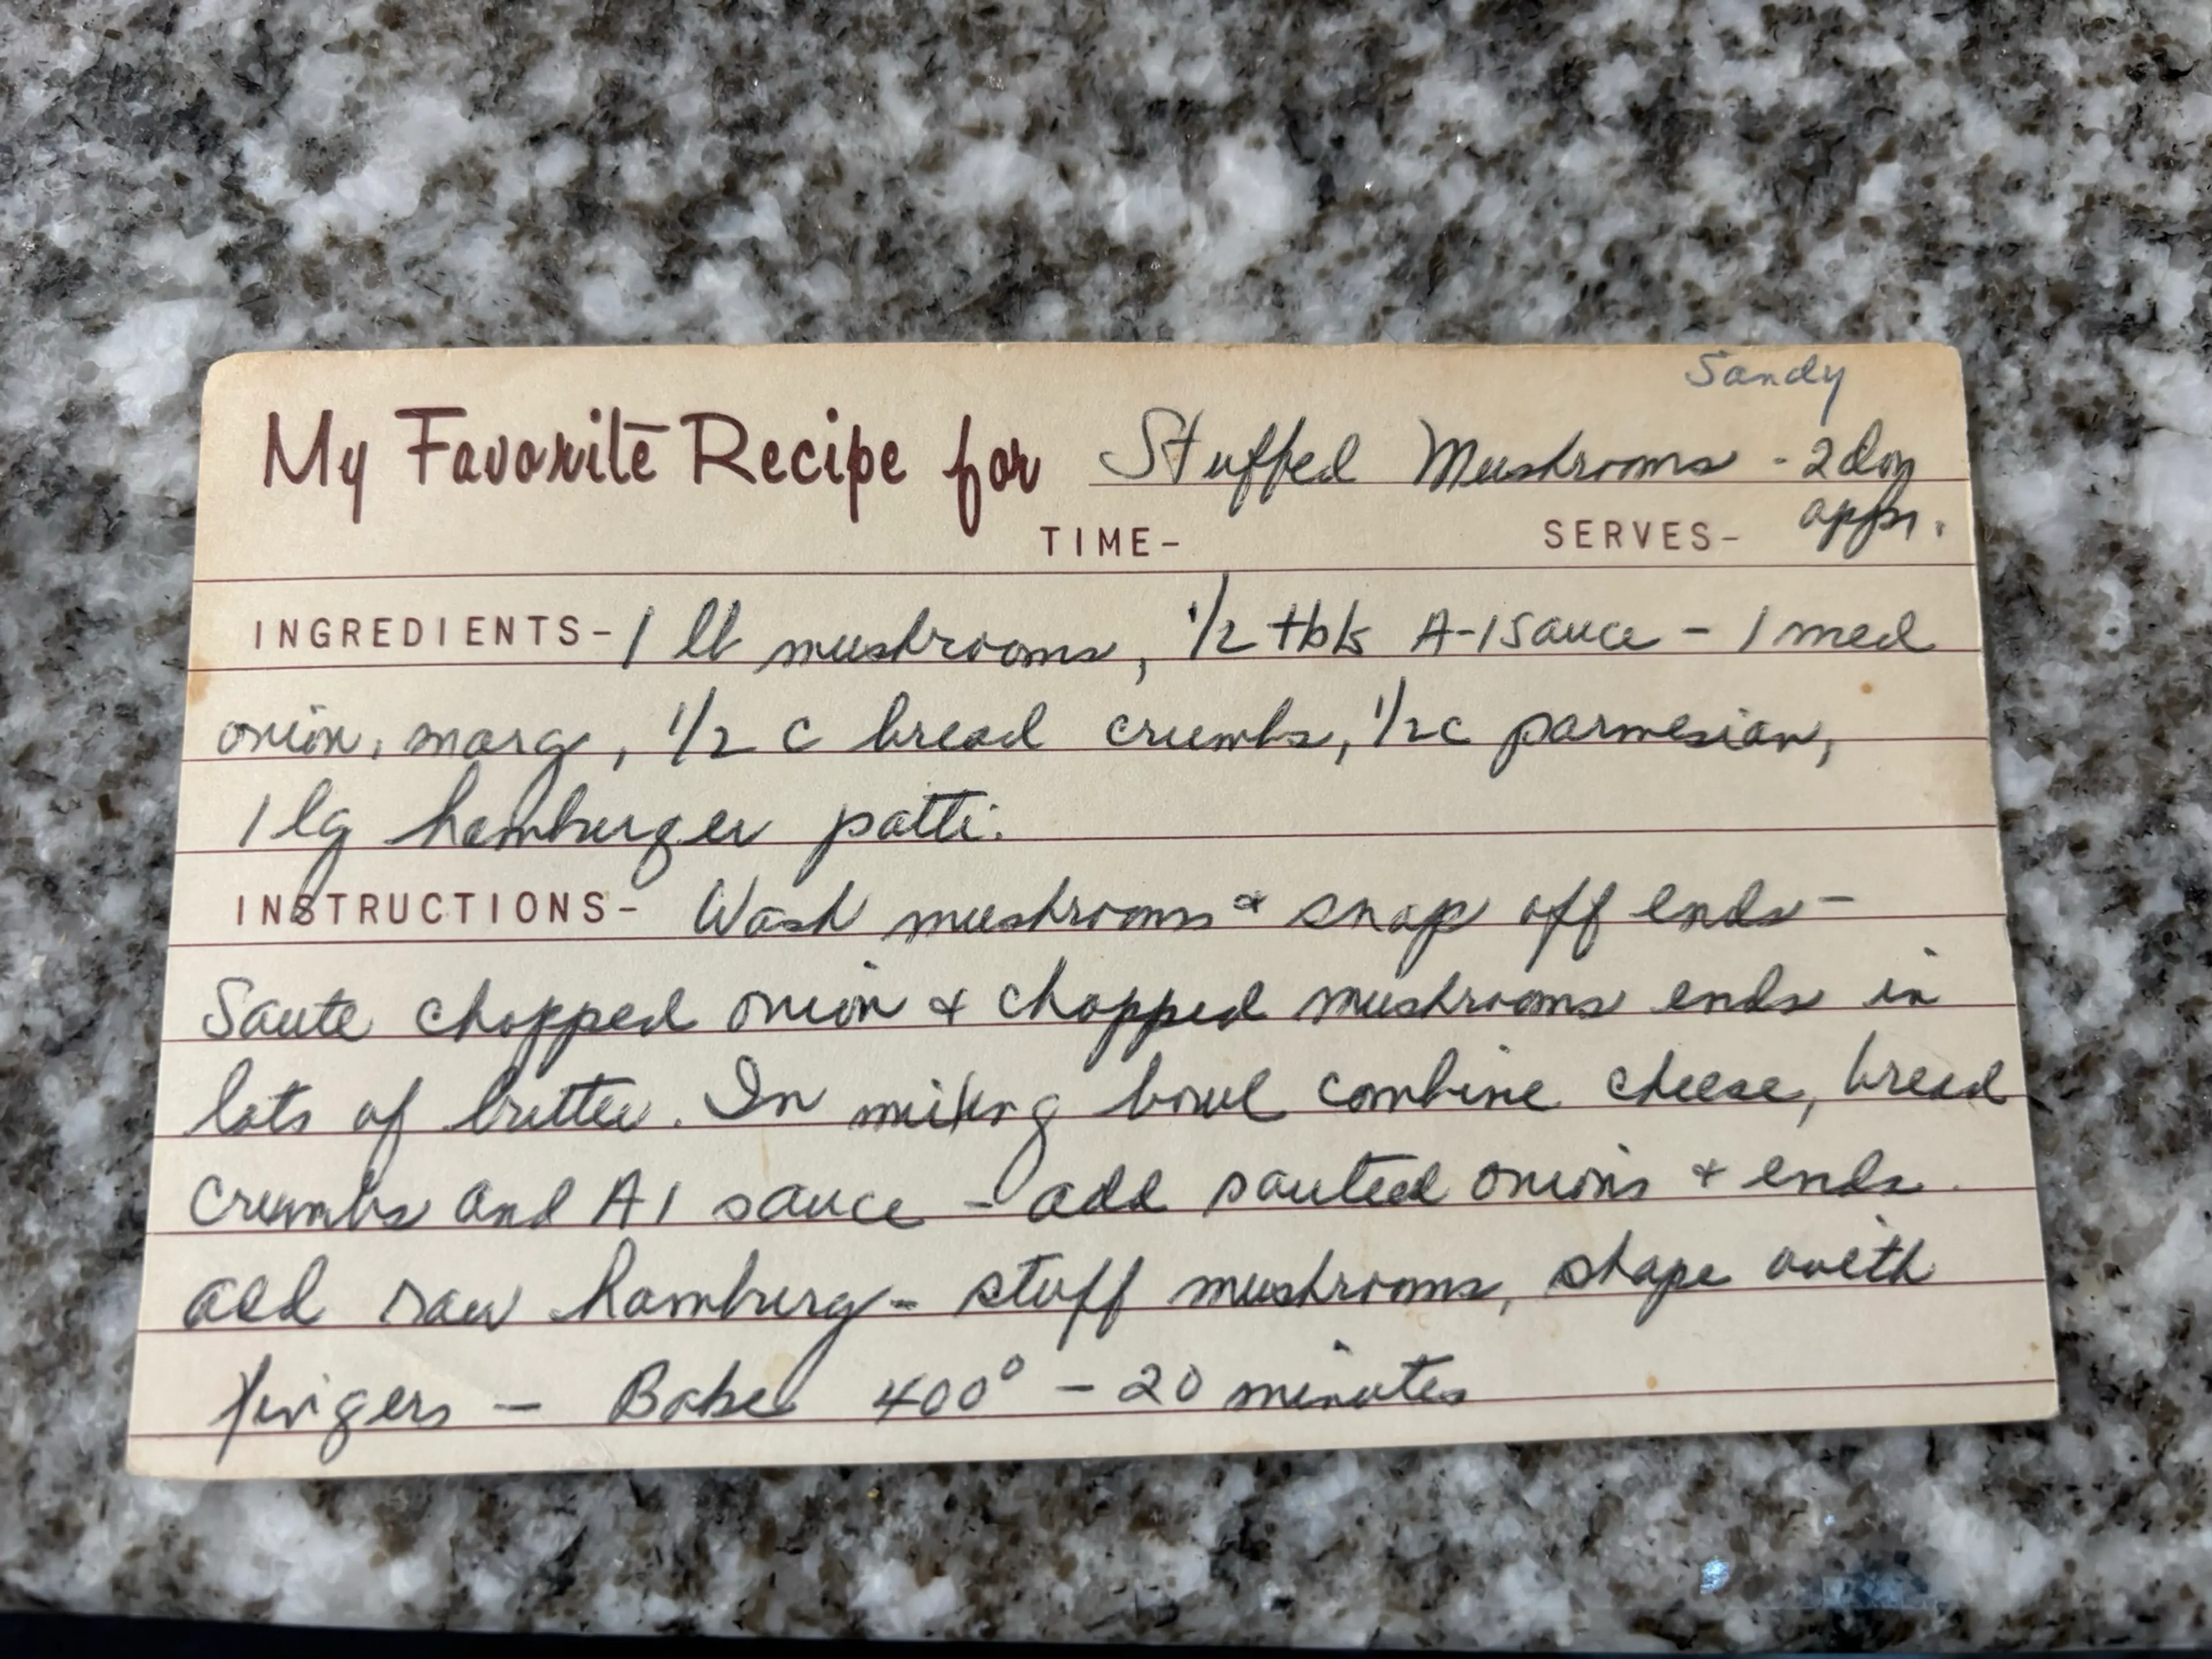 Sandy
My Favorite Recipe for Stuffed Mushrooms - 2 doz
TIME- SERVES- appr.
INGREDIENTS- 1 lb mushrooms, 1/2 tbls A-1 Sauce - 1 med
onion, marg, 1/2 c bread crumbs, 1/2 c parmesian,
1 lg hamburger patti.
INSTRUCTIONS- Wash mushrooms & snap off ends -
Saute chopped onion & chopped mushrooms ends in
lots of butter. In mixing bowl combine cheese, bread
crumbs and A1 sauce - add sauteed onions & ends.
add raw hamburg - stuff mushrooms, shape with
fingers - Bake 400° - 20 minutes